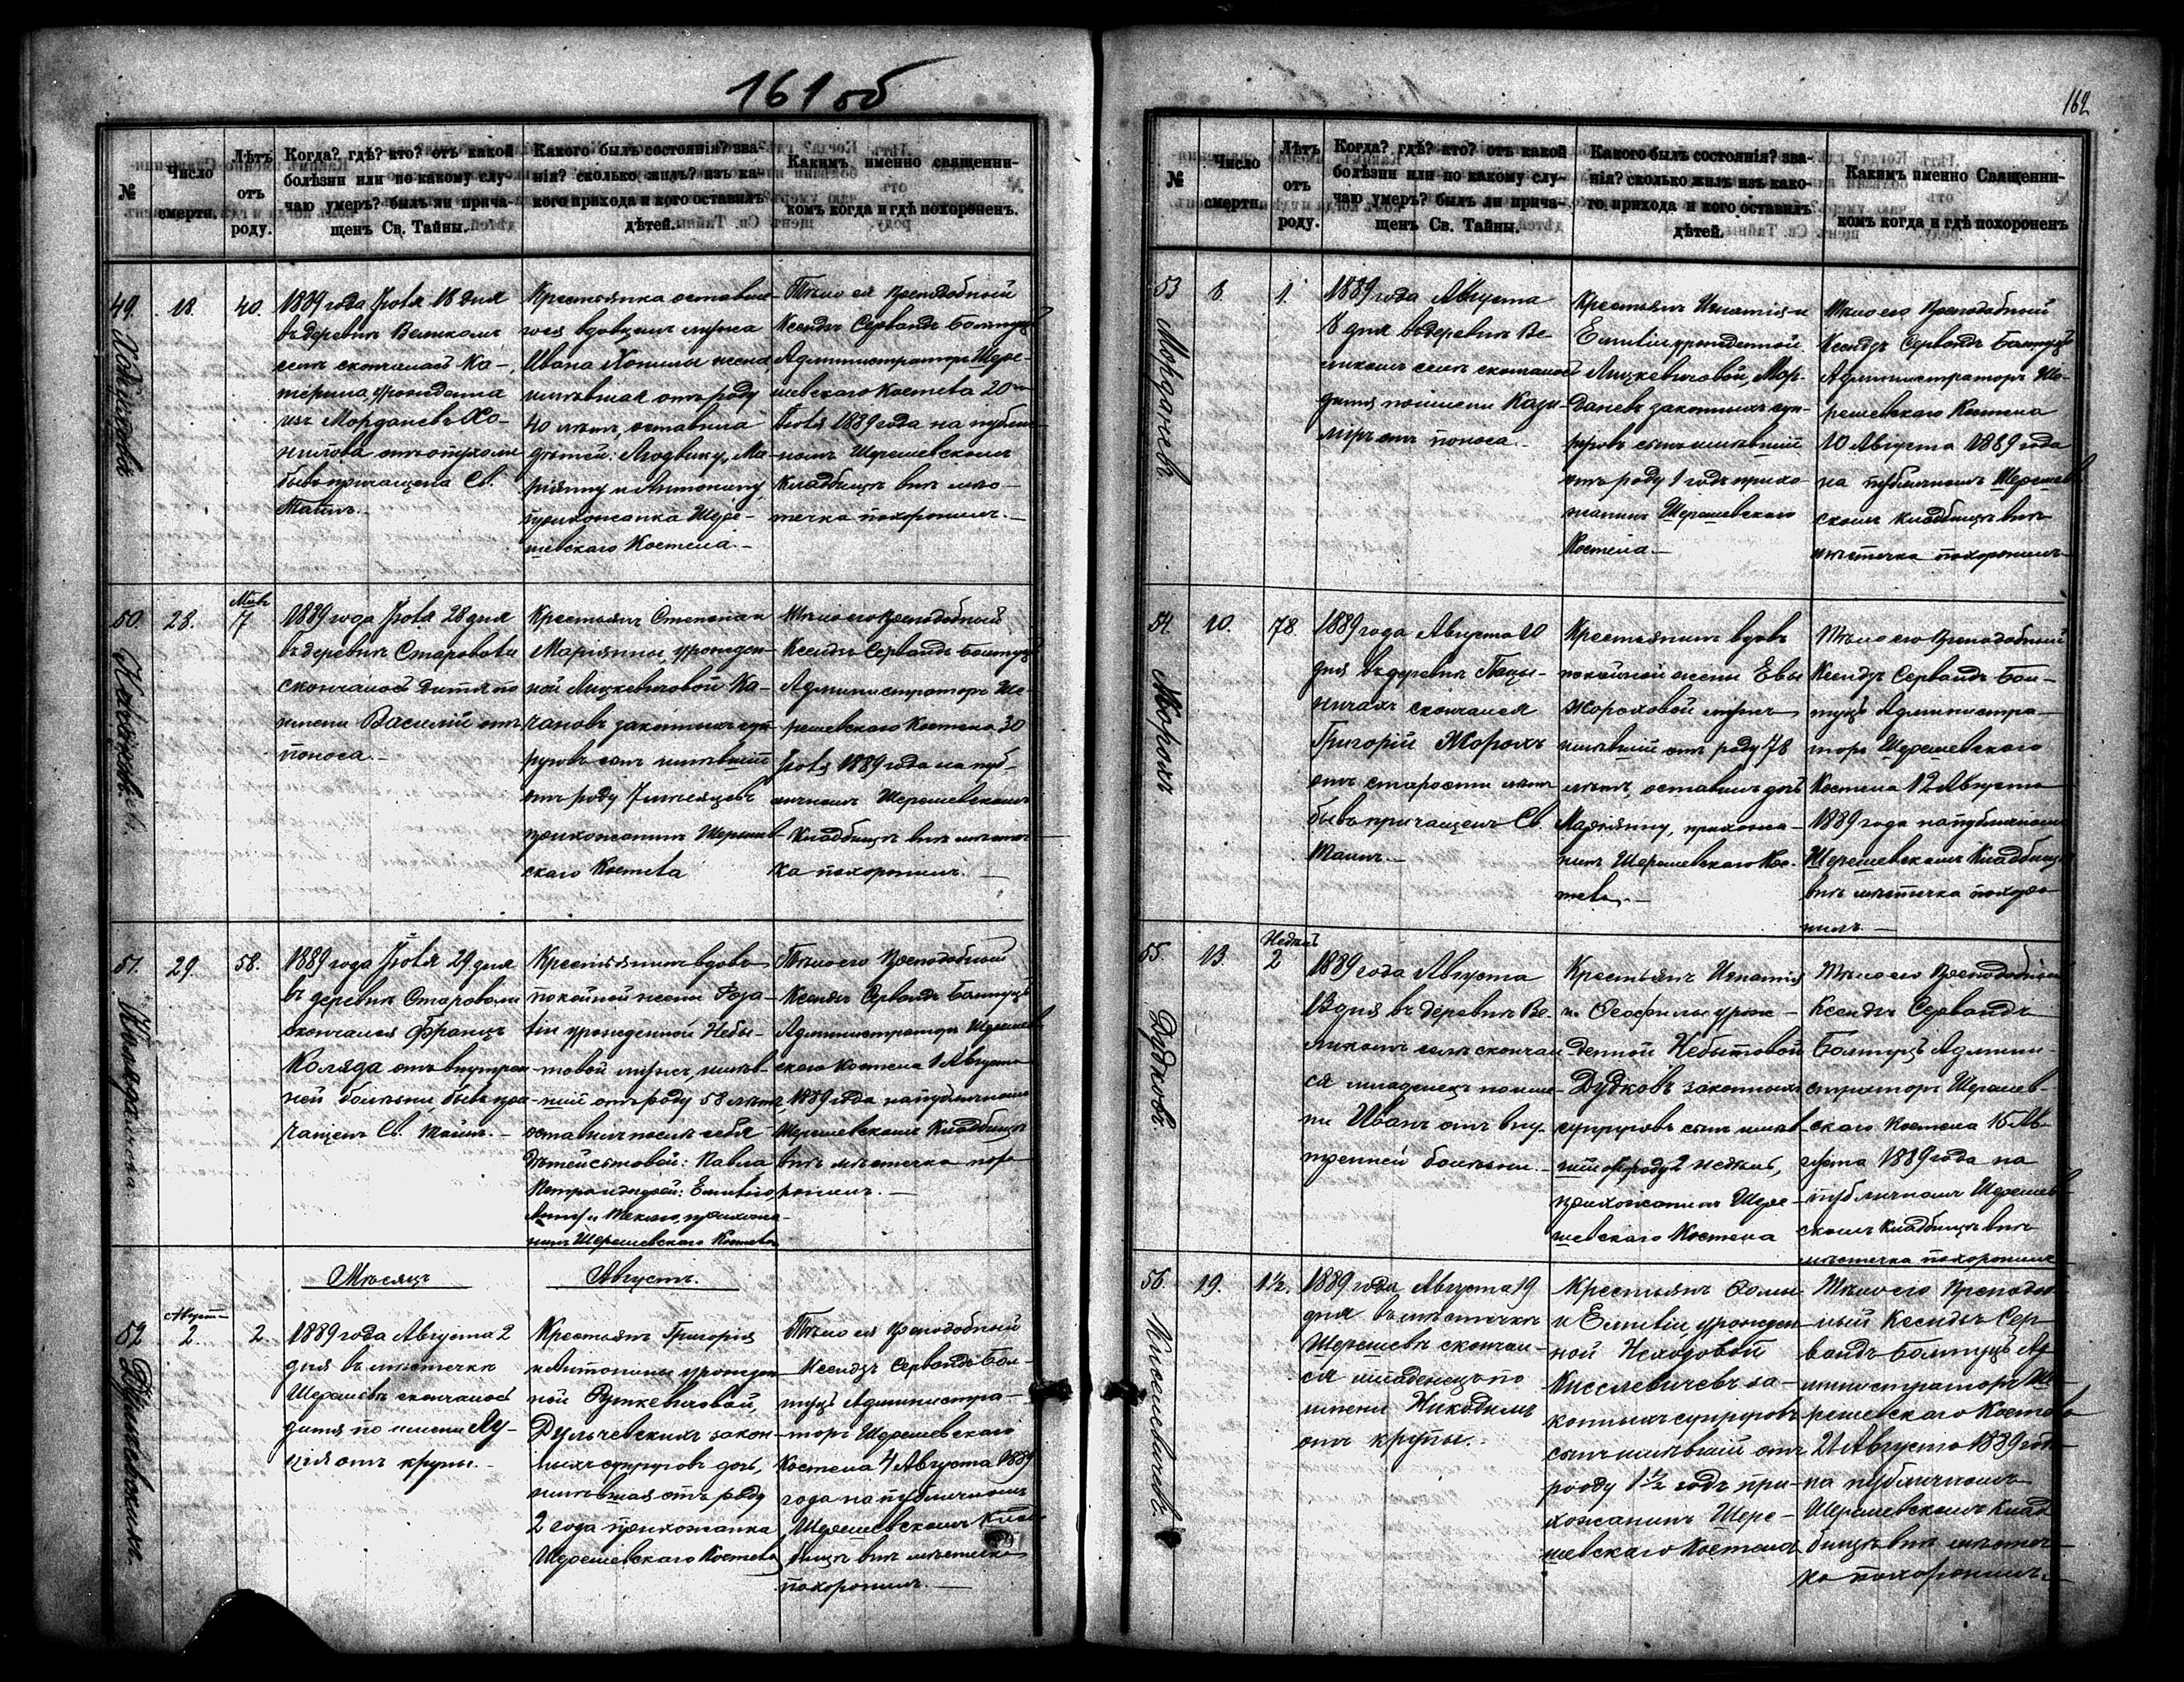 161 об
№
Число
смерти.
Лѣтъ
отъ
роду.
Когда? гдѣ? кто? отъ какой
болѣзни или по какому слу-
чаю умеръ? былъ ли прича-
щенъ Св. Тайны.
Какого былъ состоянія? зва-
нія? сколько жилъ? изъ ка-
кого прихода и кого оставилъ
дѣтей.
Какимъ именно священни-
комъ когда и гдѣ похороненъ.
49.
18.
40.
1889 года Іюля 18 дня
въ деревнѣ Великомъ
селѣ скончалась Ка-
терина, урожденна
изъ Моргалевъ Хо-
нилова отъ опухоли
бывъ причащена Св.
Таинъ.
Крестьянка оставив-
шая вдовцемъ мужа
Ивана Хонила жена,
имѣвшая отъ роду
40 лѣтъ, оставила
дѣтей: Людвику, Ма-
ріянну и Антонину,
прихожанка Шере-
шевскаго Костела.
Тѣло ея Преподобный
Ксендзъ Сервандъ Балтуцъ
Администраторъ Шере-
шевскаго Костела 20го
Іюля 1889 года на публич-
номъ Шерешевскомъ
Кладбищѣ внѣ мѣс-
течка похоронилъ.
50.
28.
Мѣс.
7
1889 года Іюля 28 дня
въ деревнѣ Староволи
скончалось дитя по
имени Василій отъ
поноса.
Крестьянъ Степана и
Маріянны, урожден-
ной Лицкевичовой Ка-
чановъ законныхъ суп-
руговъ сынъ имѣвшій
отъ роду 7 мѣсяцевъ
прихожанинъ Шерешев-
скаго Костела
Тѣло его Преподобный
Ксендзъ Сервандъ Балтуцъ
Администраторъ Ше-
решевскаго Костела 30
Іюля 1889 года на пуб-
личномъ Шерешевскомъ
Кладбищѣ внѣ мѣстеч-
ка похоронилъ.
51.
29.
58.
1889 года Іюля 29 дня
въ деревнѣ Староволи
скончался Францъ
Коляда отъ внутрен-
ней болѣзни, бывъ при-
чащенъ Св. Таинъ.
Крестьянинъ вдовъ
покойной жены Роза-
ліи урожденной Небы-
товой мужъ, имѣв-
шій отъ роду 58 лѣтъ,
оставилъ послѣ себя
дѣтей сыновей: Павла
Петра и дочерей: Емилію,
Анну и Теклю, прихожа-
нинъ Шерешевскаго Костела
Тѣло его Преподобный
Ксендзъ Сервандъ Балтуцъ
Администраторъ Шерешев-
скаго Костела 1 Августа
1889 года на публичномъ
Шерешевскомъ Кладбищѣ
внѣ мѣстечка похо-
ронилъ.
Мѣсяцъ
Августъ.
52
Дульчевскихъ.
Августа
2.
2.
1889 года Августа 2
дня въ мѣстечкѣ
Шерешевѣ скончалось
дитя по имени Лу-
ція отъ крупы.
Крестьянъ Григорія
и Антонины урожден-
ной Руткевичовой,
Дульчевскихъ закон-
ныхъ супруговъ дочь,
имѣвшая отъ роду
2 года прихожанка
Шерешевскаго Костела
Тѣло ея Преподобный
Ксендзъ Сервандъ Бал-
туцъ Администра-
торъ Шерешевскаго
Костела 4 Августа 1889
года на публичномъ
Шерешевскомъ Клад-
бищѣ внѣ мѣстечка
похоронилъ.
162
№
Число
смерти.
Лѣтъ
отъ
роду.
Когда? гдѣ? кто? отъ какой
болѣзни или по какому слу-
чаю умеръ? былъ ли прича-
щенъ Св. Тайны.
Какого былъ состоянія? зва-
нія? сколько жилъ изъ како-
го прихода и кого оставилъ
дѣтей.
Какимъ именно Священни-
комъ когда и гдѣ похороненъ
53
8.
1.
1889 года Августа
8 дня въ деревнѣ Ве-
ликомъ селѣ скончалось
дитя по имени Кази-
міръ отъ поноса.
Крестьянъ Игнатія и
Емиліи, урожденной
Лицкевичовой, Мор-
далевъ законныхъ суп-
руговъ сынъ имѣвшій
отъ роду 1 годъ прихо-
жанинъ Шерешевскаго
Костела.
Тѣло его Преподобный
Ксендзъ Сервандъ Балтуцъ
Администраторъ Ше-
решевскаго Костела
10 Августа 1889 года
на публичномъ Шерешев-
скомъ кладбищѣ внѣ
мѣстечка похоронилъ.
54.
Жорохъ
10.
78.
1889 года Августа 10
дня въ деревнѣ Пацы-
ничахъ скончался
Григорій Жорохъ
отъ старости лѣтъ
бывъ причащенъ Св.
Таинъ.
Крестьянинъ вдовъ
покойной жены Евы
Жороховой мужъ
имѣвшій отъ роду 78
лѣтъ, оставилъ дочь
Маріянну, прихожа-
нинъ Шерешевскаго Кос-
тела.
Тѣло его Преподобный
Ксендзъ Сервандъ Бал-
туцъ Администра-
торъ Шерешевскаго
Костела 12 Августа
1889 года на публичномъ
Шерешевскомъ Кладбищѣ
внѣ мѣстечка похоро-
нилъ.
55.
Дудковъ.
13.
Недѣль
2
1889 года Августа
13 дня въ деревнѣ Ве-
ликомъ селѣ скончал-
ся младенецъ по име-
ни Иванъ отъ вну-
тренней болѣзни.
Крестьянъ Игнатія
и Ѳеофилы урож-
денной Небытовой
Дудковъ законныхъ
супруговъ сынъ имѣв-
шій отъ роду 2 недѣли,
прихожанинъ Шере-
шевскаго Костела
Тѣло его Преподобный
Ксендзъ Сервандъ
Балтуцъ Админи-
страторъ Шерешев-
скаго Костела 15 Ав-
густа 1889 года на
публичномъ Шерешев-
скомъ Кладбищѣ внѣ
мѣстечка похоронилъ
56.
Киселевичевъ.
19.
1½.
1889 года Августа 19
дня въ мѣстечкѣ
Шерешевѣ скончал-
ся младенецъ по
имени Никодимъ
отъ крупы.
Крестьянъ Ѳомы
и Емиліи, урожден-
ной Неходовой
Киселевичевъ за-
конныхъ супруговъ
сынъ имѣвшій отъ
роду 1½ годъ при-
хожанинъ Шере-
шевскаго Костела
Тѣло его Преподоб-
ный Ксендзъ Сер-
вандъ Балтуцъ Ад-
министраторъ Ше-
решевскаго Костела
21 Августа 1889 года
на публичномъ
Шерешевскомъ Клад-
бищѣ внѣ мѣстеч-
ка похоронилъ.